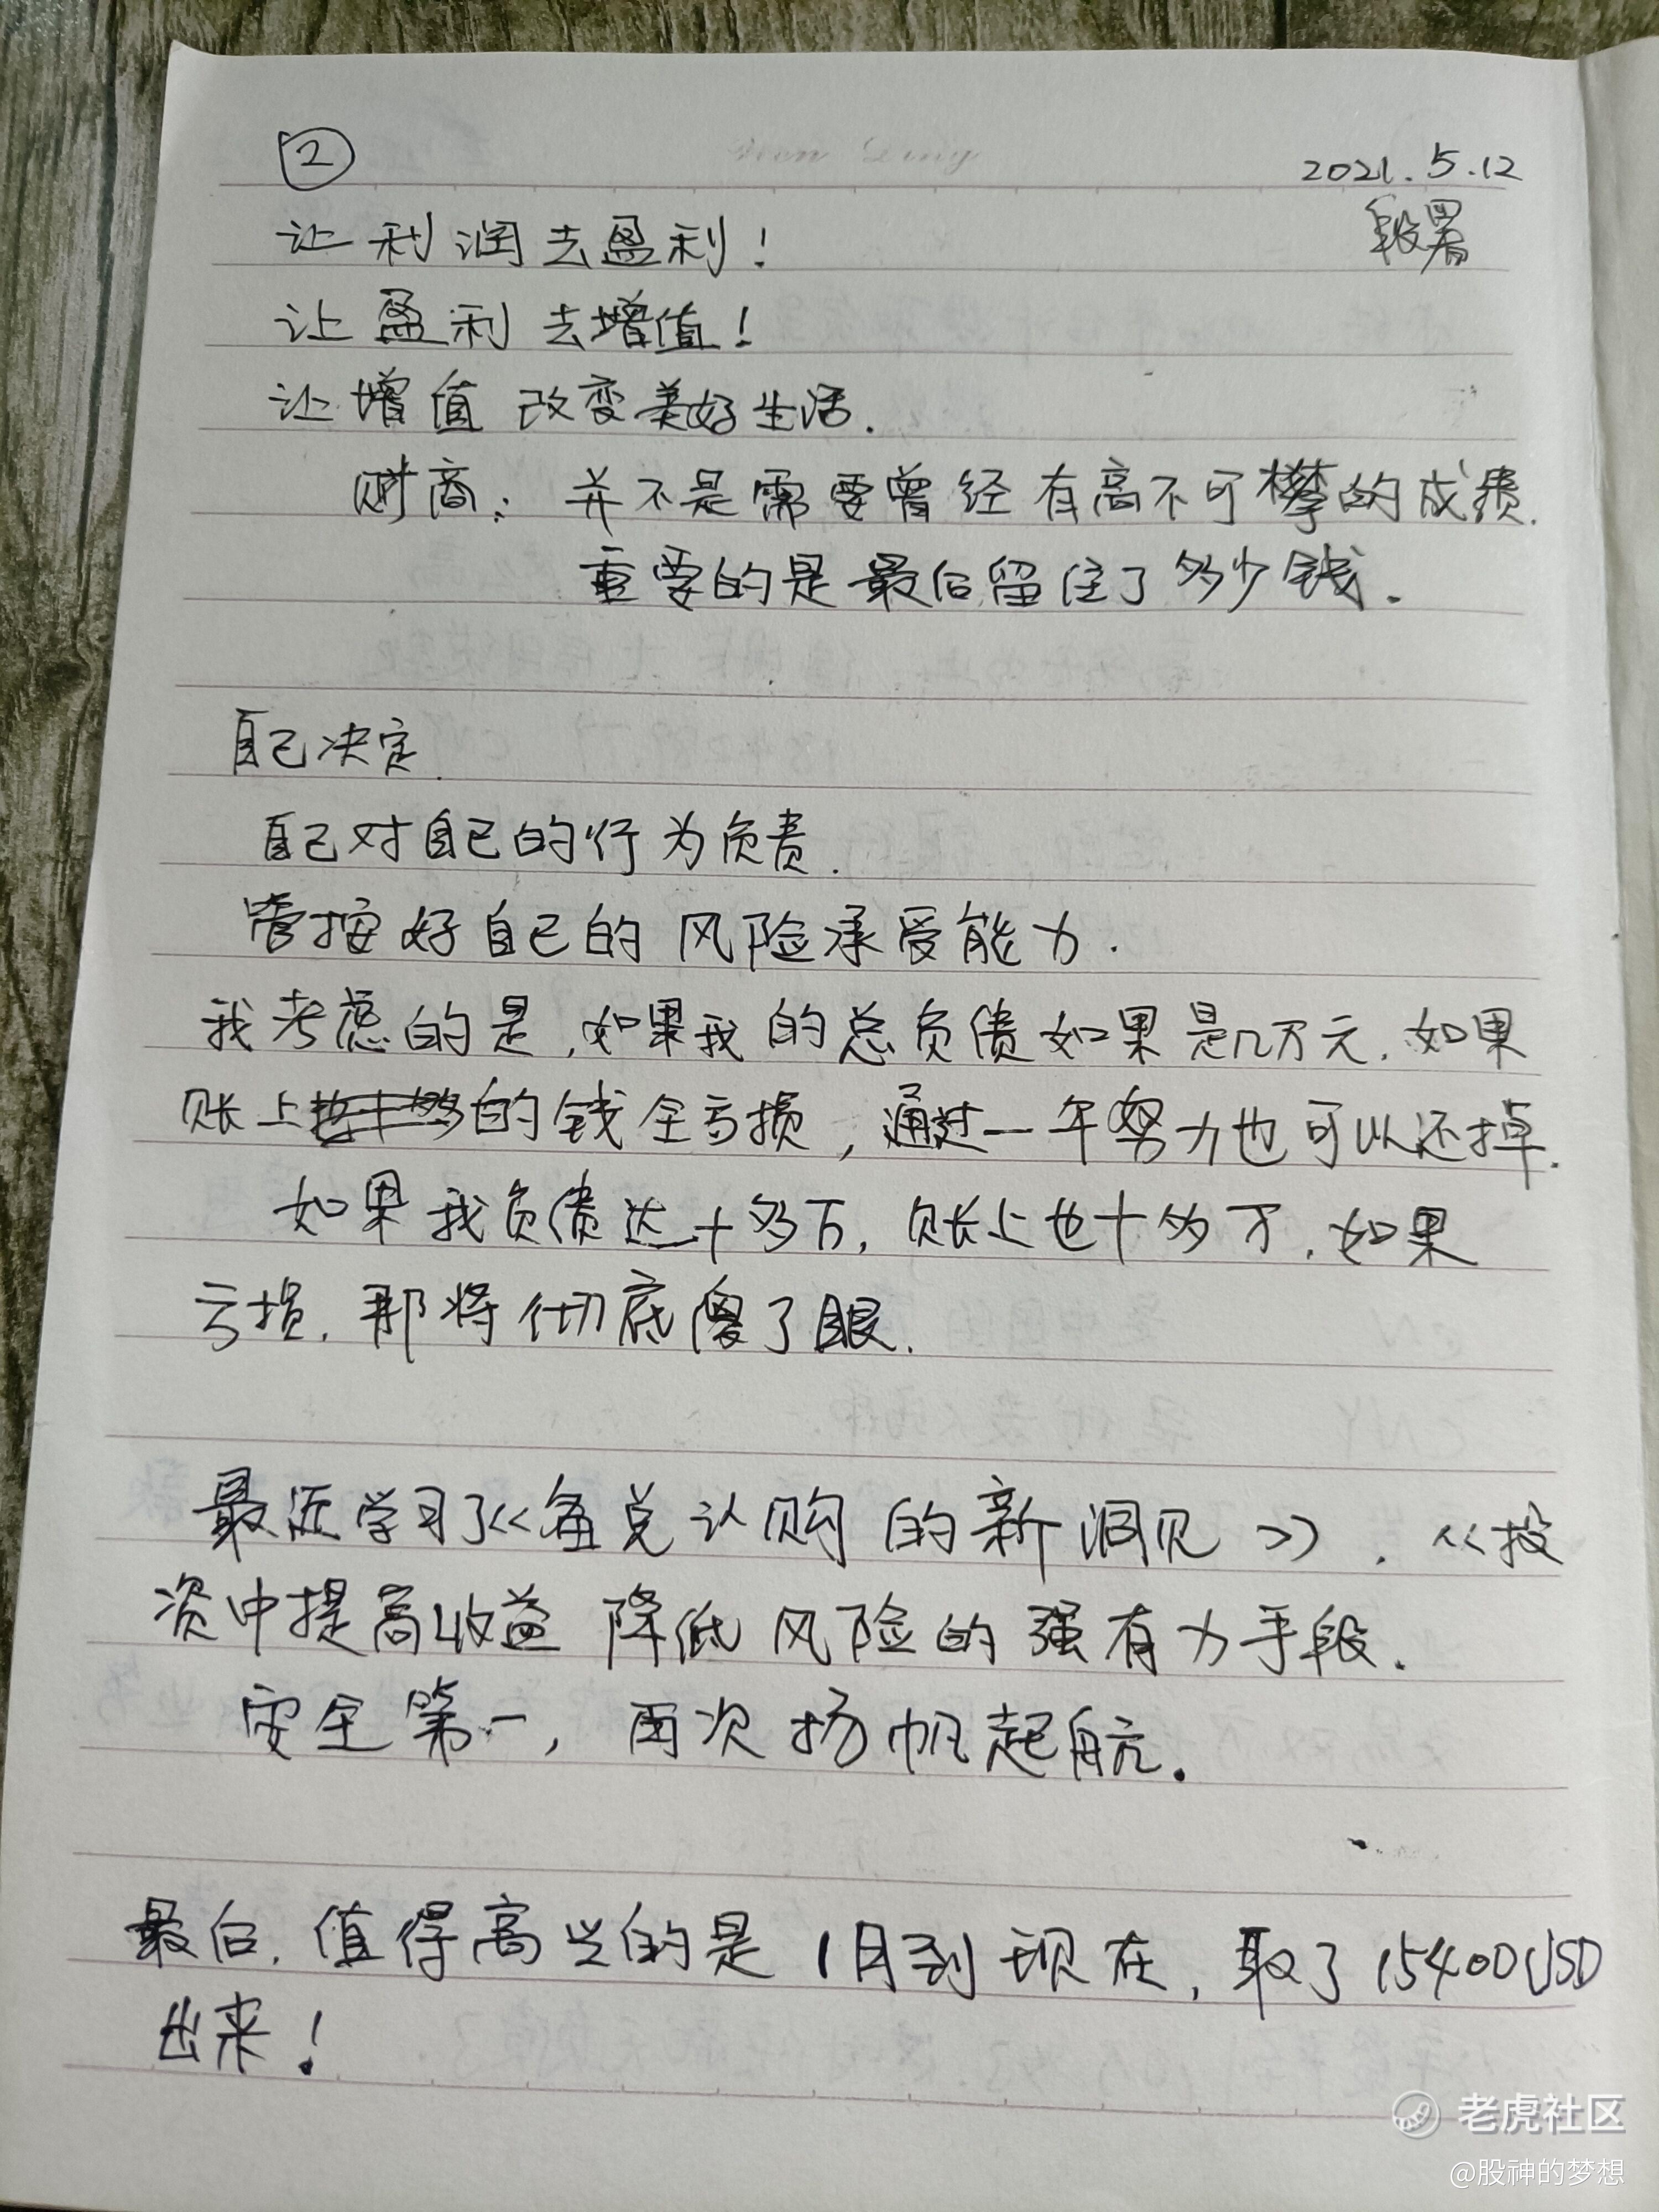 ②
2021.5.12
段暑
让利润去盈利！
让盈利去增值！
让增值改变美好生活.
财商：并不是需要曾经有高不可攀的成绩.
重要的是最后留住了多少钱.
自己决定.
自己对自己的行为负责.
管控好自己的风险承受能力.
我考虑的是,如果我的总负债如果是几万元.如果
账上的钱全亏损,通过一年努力也可以还掉.
如果我负债达十多万,账上也十多万,如果
亏损,那将彻底傻了眼.
最近学习了《备兑认购的新洞见》.《投
资中提高收益降低风险的强有力手段.
安全第一,再次扬帆起航.
最后,值得高兴的是1月到现在,取了15400USD
出来！
老虎社区
@股神的梦想